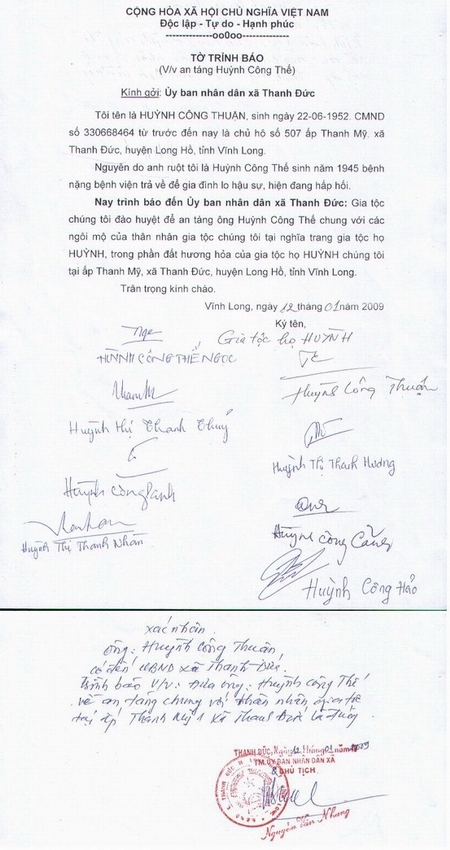 CỘNG HÒA XÃ HỘI CHỦ NGHĨA VIỆT NAM
Độc lập - Tự do - Hạnh phúc
--------------oo0oo-------------
TỜ TRÌNH BÁO
(V/v an táng Huỳnh Công Thế)
Kính gởi: Ủy ban nhân dân xã Thanh Đức
Tôi tên là HUỲNH CÔNG THUẬN, sinh ngày 22-06-1952. CMND
số 330668464 từ trước đến nay là chủ hộ số 507 ấp Thanh Mỹ. xã
Thanh Đức, huyện Long Hồ, tỉnh Vĩnh Long.
Nguyên do anh ruột tôi là Huỳnh Công Thế sinh năm 1945 bệnh
nặng bệnh viện trả về để gia đình lo hậu sự, hiện đang hấp hối.
Nay trình báo đến Ủy ban nhân dân xã Thanh Đức: Gia tộc
chúng tôi đào huyệt để an táng ông Huỳnh Công Thế chung với các
ngôi mộ của thân nhân gia tộc chúng tôi tại nghĩa trang gia tộc họ
HUỲNH, trong phần đất hương hỏa của gia tộc họ HUỲNH chúng tôi
tại ấp Thanh Mỹ, xã Thanh Đức, huyện Long Hồ, tỉnh Vĩnh Long.
Trân trọng kính chào.
Vĩnh Long, ngày 12 tháng 01 năm 2009
Ký tên,
Gia tộc họ HUỲNH
HUỲNH CÔNG THẾ NGỌC
Huỳnh Công Thuận
Huỳnh Thị Thanh Thuỷ
Huỳnh Thị Thanh Hương
Huỳnh Công
Huỳnh Thị Thanh Nhàn
Huỳnh Công
Huỳnh Công Hảo
xác nhận.
Ông: Huỳnh Công Thuận
có đến UBND xã Thanh Đức.
Trình báo V/v: Đưa ông: Huỳnh Công Thế
về an táng chung với thân nhân gia tộc
tại ấp Thanh Mỹ 1 xã Thanh Đức là đúng
THANH ĐỨC, Ngày 12 tháng 01 năm 2009
TM. ỦY BAN NHÂN DÂN XÃ
CHỦ TỊCH
Nguyễn Văn Nhang